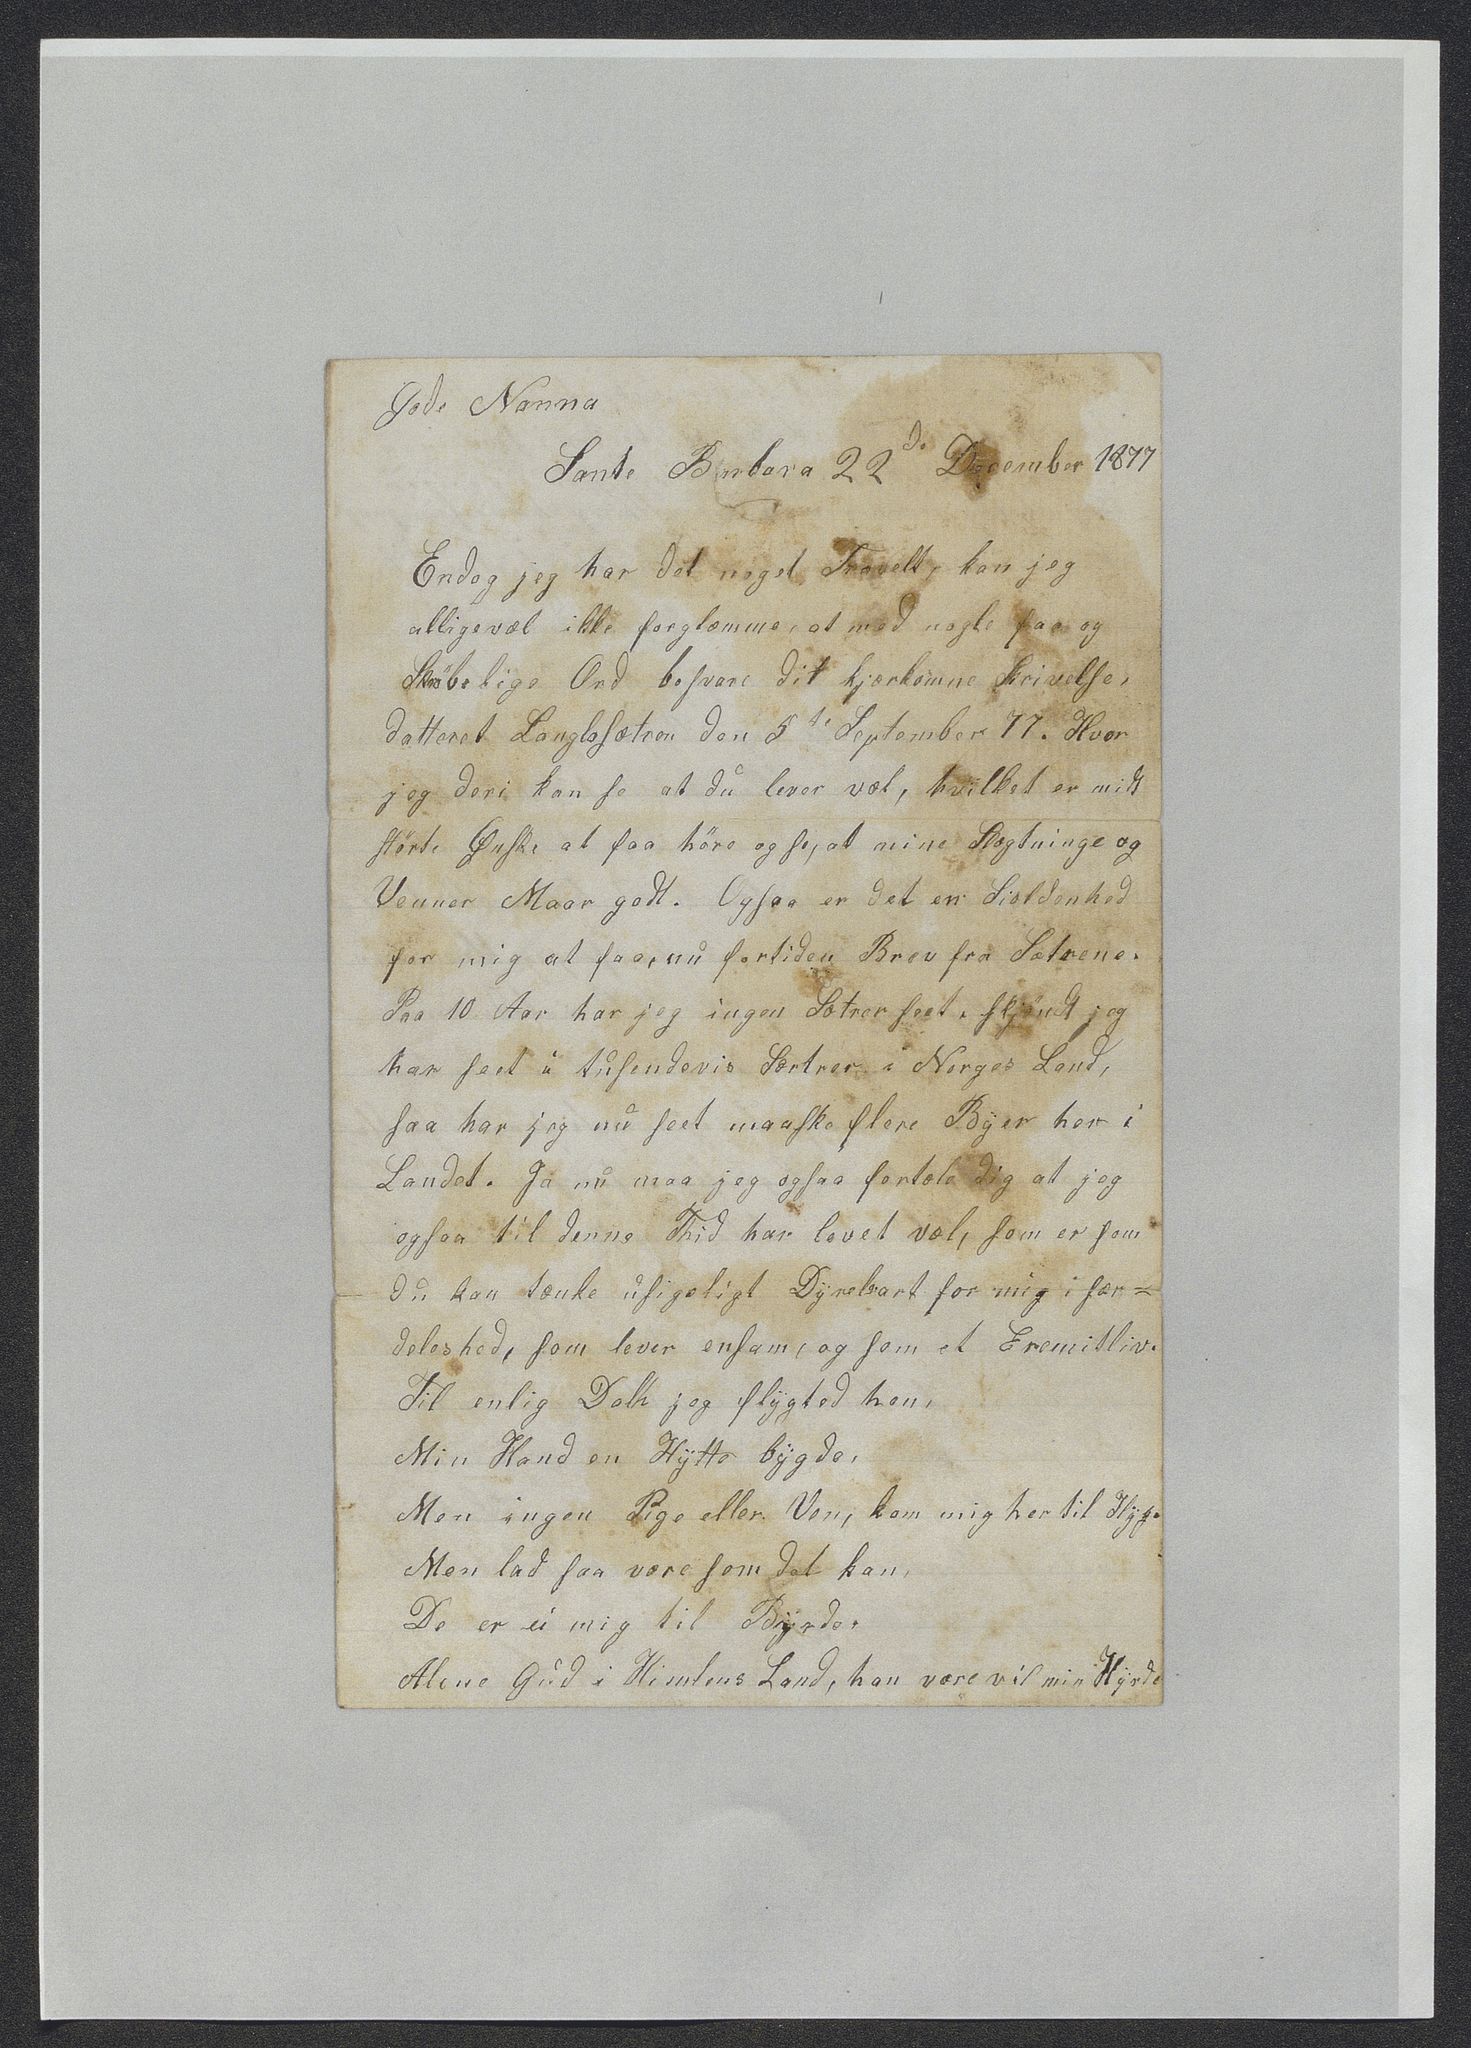 Gode Nanna
Sante Barbara 22de December 1877
Endog jeg har det noget Travelt, kan jeg
alligevæl ikke forglæmme, at med nogle faa og
Skrøbelige Ord besvare dit kjærkomne skrivelse,
datteret Langlesætren den 5te September 77. Hvor
jeg deri kan se at du lever væl, hvilket er midt
størte Ønske at faa höre og se, at mine Slægtninge og
Venner Maar godt. Ogsaa er det en Sieldenhed
for mig at faa, nu fortiden Brev fra Sætrene.
Paa 10 Aar har jeg ingen Sætrer seet. skjøndt jeg
har seet i tusendevis Sætrer i Norges Land,
saa har jeg nu seet maaske flere Byer her i
Landet. Ja nu maa jeg ogsaa fortæle dig at jeg
ogsaa til denne Thid har levet væl, som er som
du kan tænke usigeligt Dyrebart for mig i sær=
deleshed, som lever ensam, og som et Eremitliv.
Til enlig Dalk jeg flygted hen,
Min Haand en Hytte bygde,
Men ingen Pige eller Ven, kom mig her til Hyge
Men lad saa være som det kan,
De er ei mig til Byrde.
Alene Gud i Himlens Land, han være vil min Hyrde